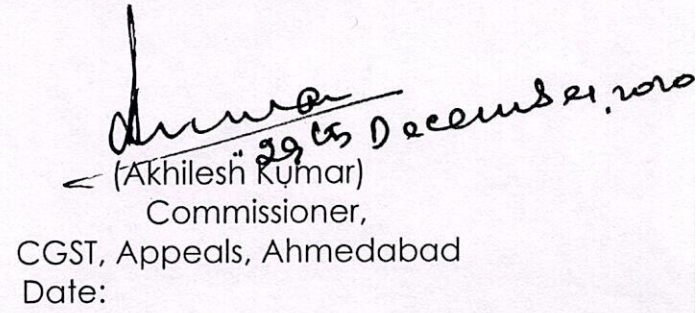 29th December, 2020
(Akhilesh Kumar)
Commissioner,
CGST, Appeals, Ahmedabad
Date: